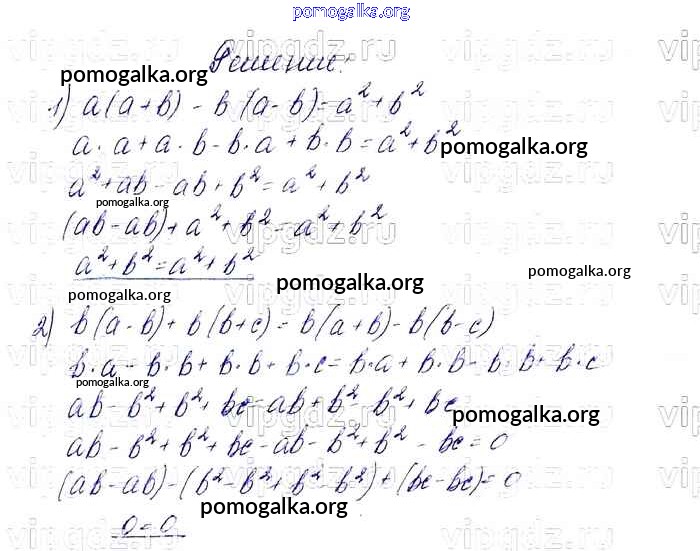 pomogalka.org
vipgdz.ru
Решение:
pomogalka.org
1) a(a+b) - b(a-b)=a²+b²
a·a+a·b-b·a+b·b=a²+b²
pomogalka.org
vipgdz.ru
a²+ab-ab+b²=a²+b²
pomogalka.org
(ab-ab)+a²+b²=a²+b²
vipgdz.ru
a²+b²=a²+b²
pomogalka.org
pomogalka.org
pomogalka.org
2) b(a-b)+b(b+c)=b(a+b)-b(b-c)
vipgdz.ru
b·a-b·b+b·b+b·c=b·a+b·b-b·b+b·c
pomogalka.org
ab-b²+b²+bc=ab+b²-b²+bc
pomogalka.org
ab-b²+b²+bc-ab-b²+b²-bc=0
(ab-ab)-(b²-b²+b²-b²)+(bc-bc)=0
pomogalka.org
0=0
vipgdz.ru